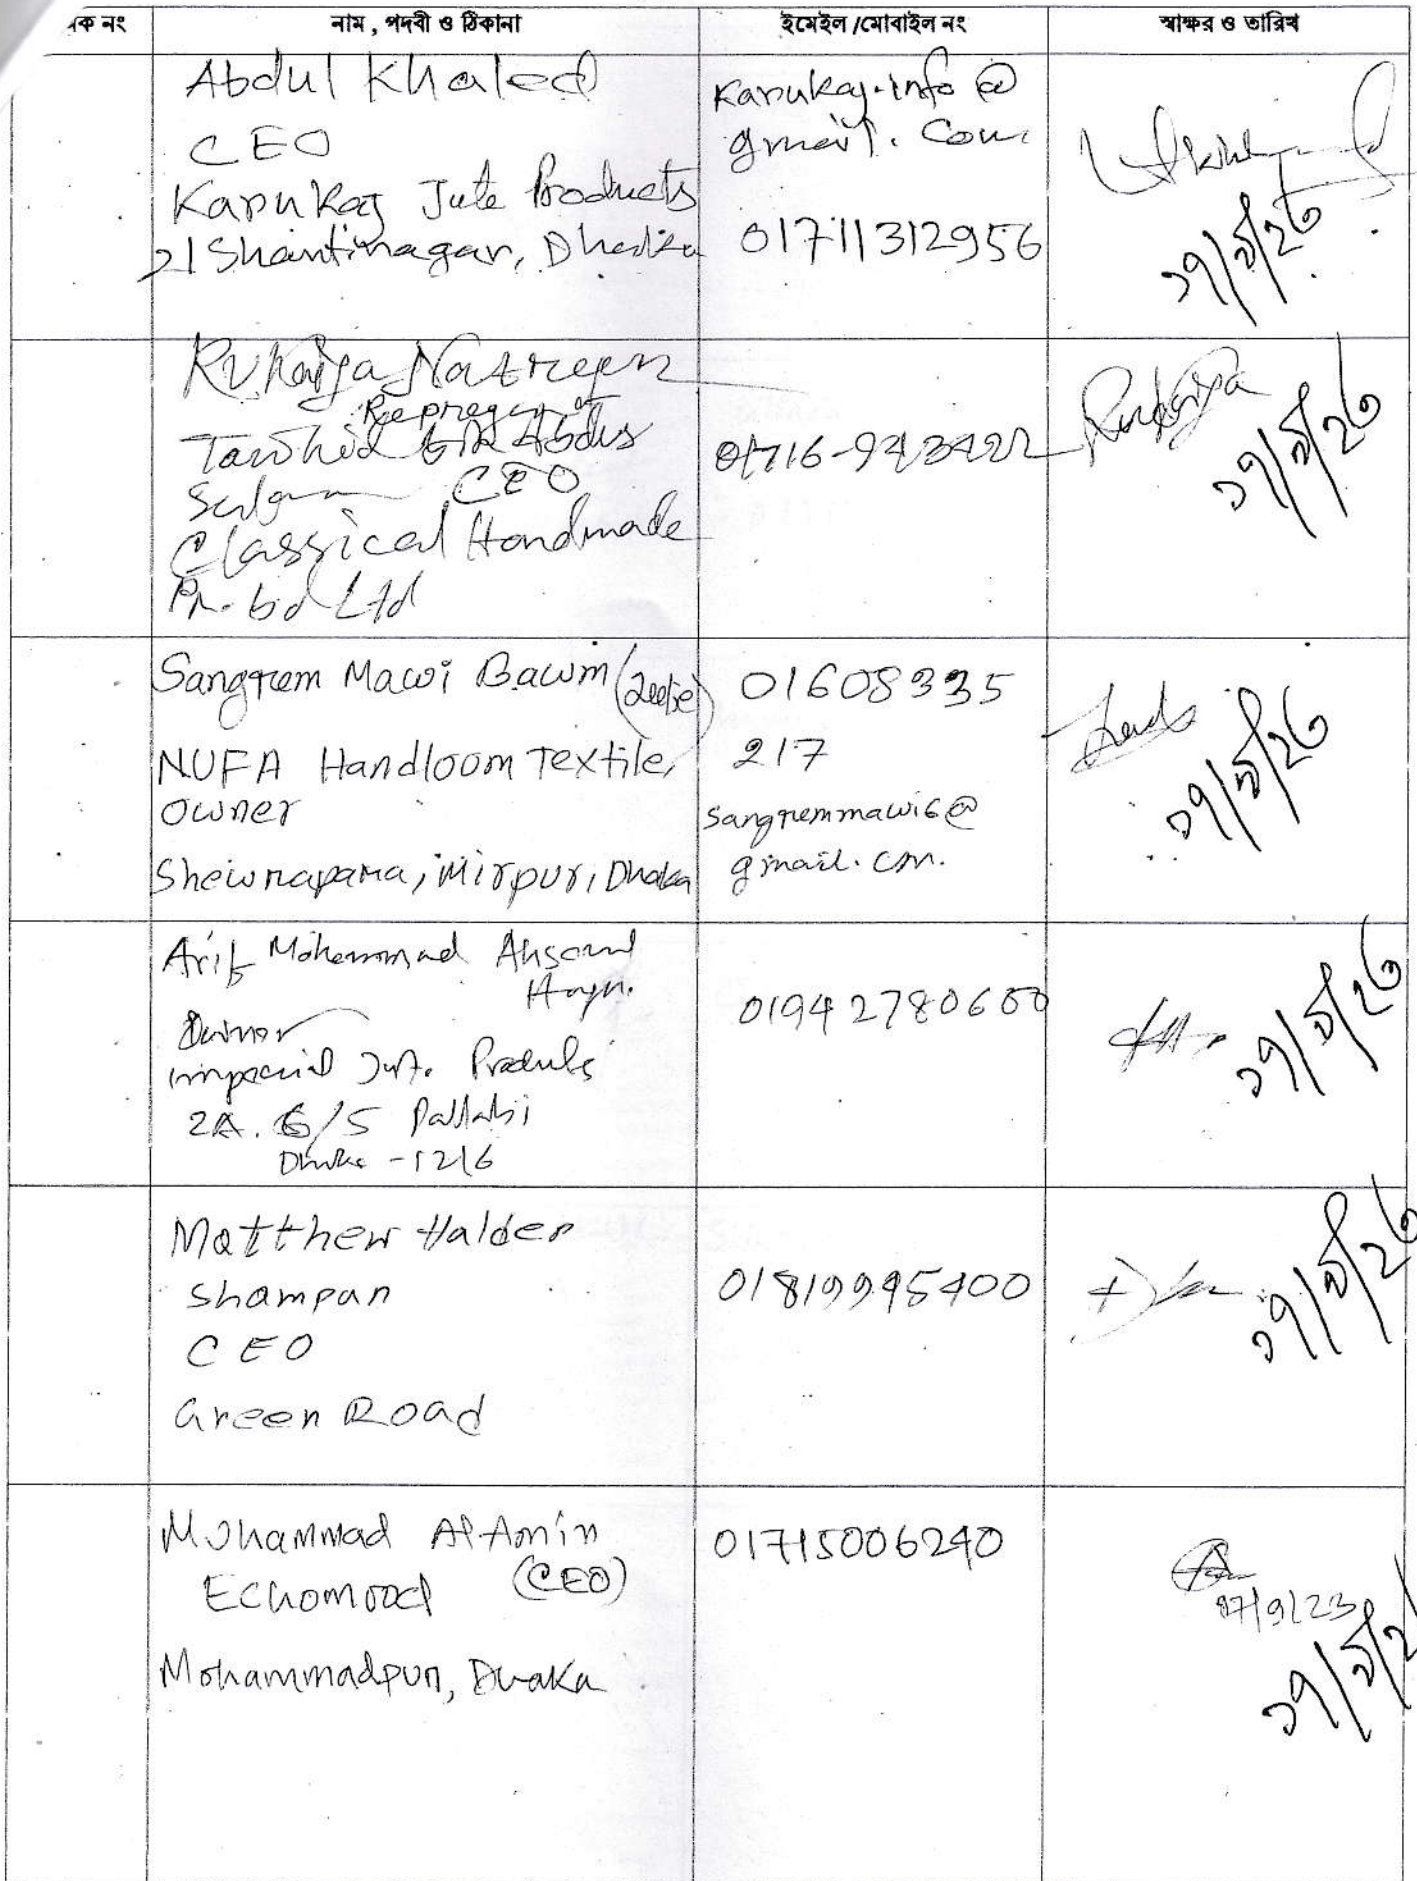 নাম , পদবী ও ঠিকানা ইমেইল /মোবাইল নং স্বাক্ষর ও তারিখ
Abdul Khaled
CEO
Karukaj Jute Products
21 Shantinagar, Dhaka
Karukaj.info@
gmail.com
01711312956
Rukaiya Nazreen
Tawhid Bin Abdus
Salam CEO
Classical Handmade
Pr. bd Ltd
Rukaiya
Sangrem Mawi Bawm
NUFA Handloom Textile,
owner
Mirpur, Dhaka
01608335
217
sangremmawi6@
gmail.com.
Arif Mohammad Ahsanul
Owner
Imperial Jute Products
2A. 6/5 Pallabi
Dhaka -1216
01942780600
Matthew Halder
Shampan
CEO
Green Road
01819995400
Mohammad Al-Amin
Echomood (CEO)
Mohammadpur, Dhaka
01715006240
17/9/23